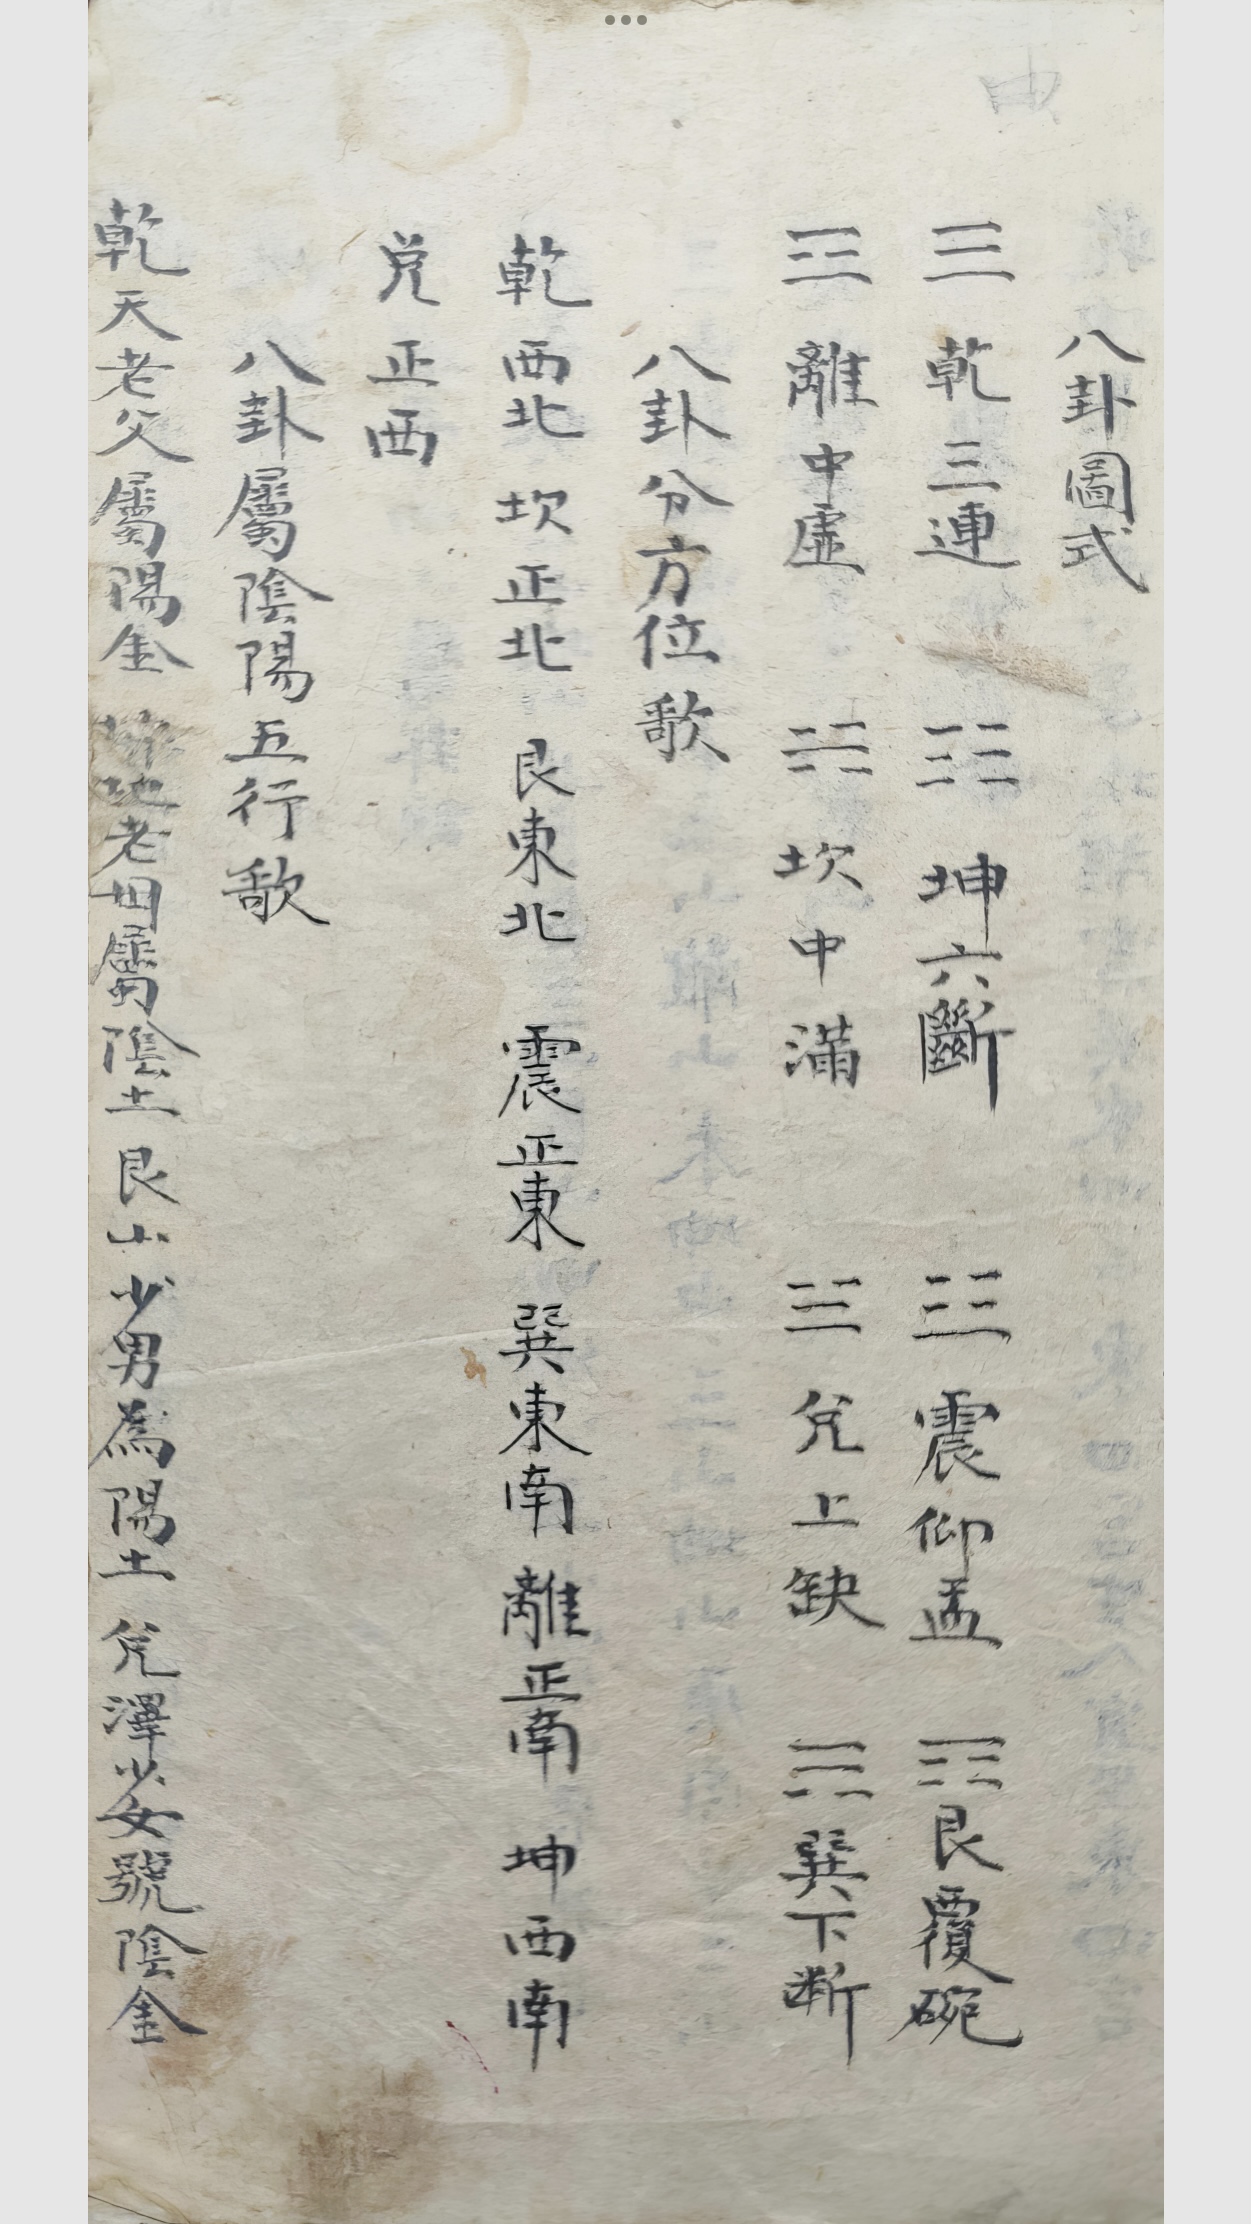 八卦圖式
☰ 乾三連 ☷ 坤六斷 ☳ 震仰盂 ☶ 艮覆碗
☲ 離中虛 ☵ 坎中滿 ☱ 兌上缺 ☴ 巽下斷
八卦分方位歌
乾西北 坎正北 艮東北 震正東 巽東南 離正南 坤西南
兌正西
八卦屬陰陽五行歌
乾天老父屬陽金 坤地老母屬陰土 艮山少男為陽土 兌澤少女號陰金